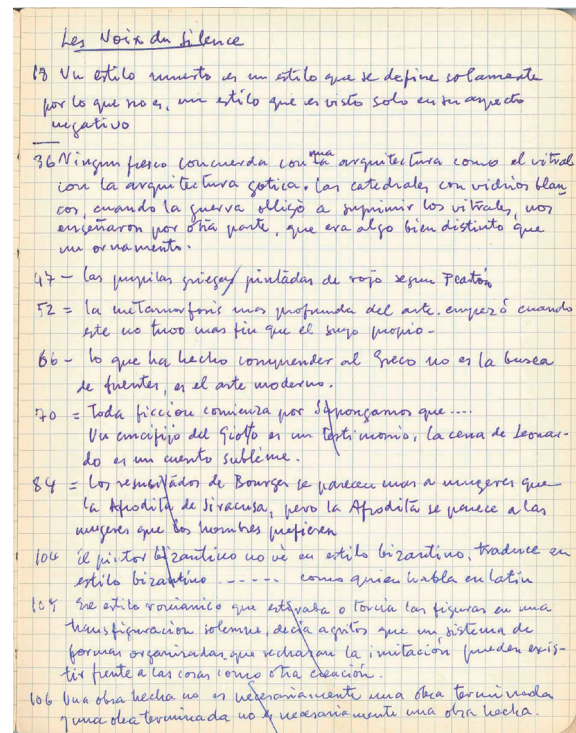 Les Voix du Silence
18 Un estilo muerto es un estilo que se define solamente
por lo que no es, un estilo que es visto solo en su aspecto
negativo
36 Ningun fresco concuerda con una arquitectura como el vitral
con la arquitectura gotica. Las catedrales con vidrios blan
cos, cuando la guerra obligó a suprimir los vitrales, nos
enseñaron por otra parte, que era algo bien distinto que
un ornamento.
47 - las pupilas griegas pintadas de rojo segun Platón
52 = la metamorfosis mas profunda del arte empezó cuando
este no tuvo mas fin que el suyo propio -
66 - lo que ha hecho comprender al Greco no es la busca
de fuentes, es el arte moderno.
70 = Toda ficcion comienza por Supongamos que ....
Un crucifijo del Giotto es un testimonio, la cena de Leonar-
do es un cuento sublime.
84 = Los resucitados de Bourges se parecen mas a mugeres que
la Afrodita de Siracusa, pero la Afrodita se parece a las
mugeres que los hombres prefieren
104 il pintor bizantino no vè en estilo bizantino, traduce en
estilo bizantino ------ como quien habla en latin
104 Ese estilo romanico que estiraba o torcia las figuras en una
transfiguracion solemne, decia a gritos que un sistema de
formas organizadas que rechazan la imitación pueden exis-
tir frente a las cosas como otra creación.
106 Una obra hecha no es necesariamente una obra terminada
y una obra terminada no es necesariamente una obra hecha.